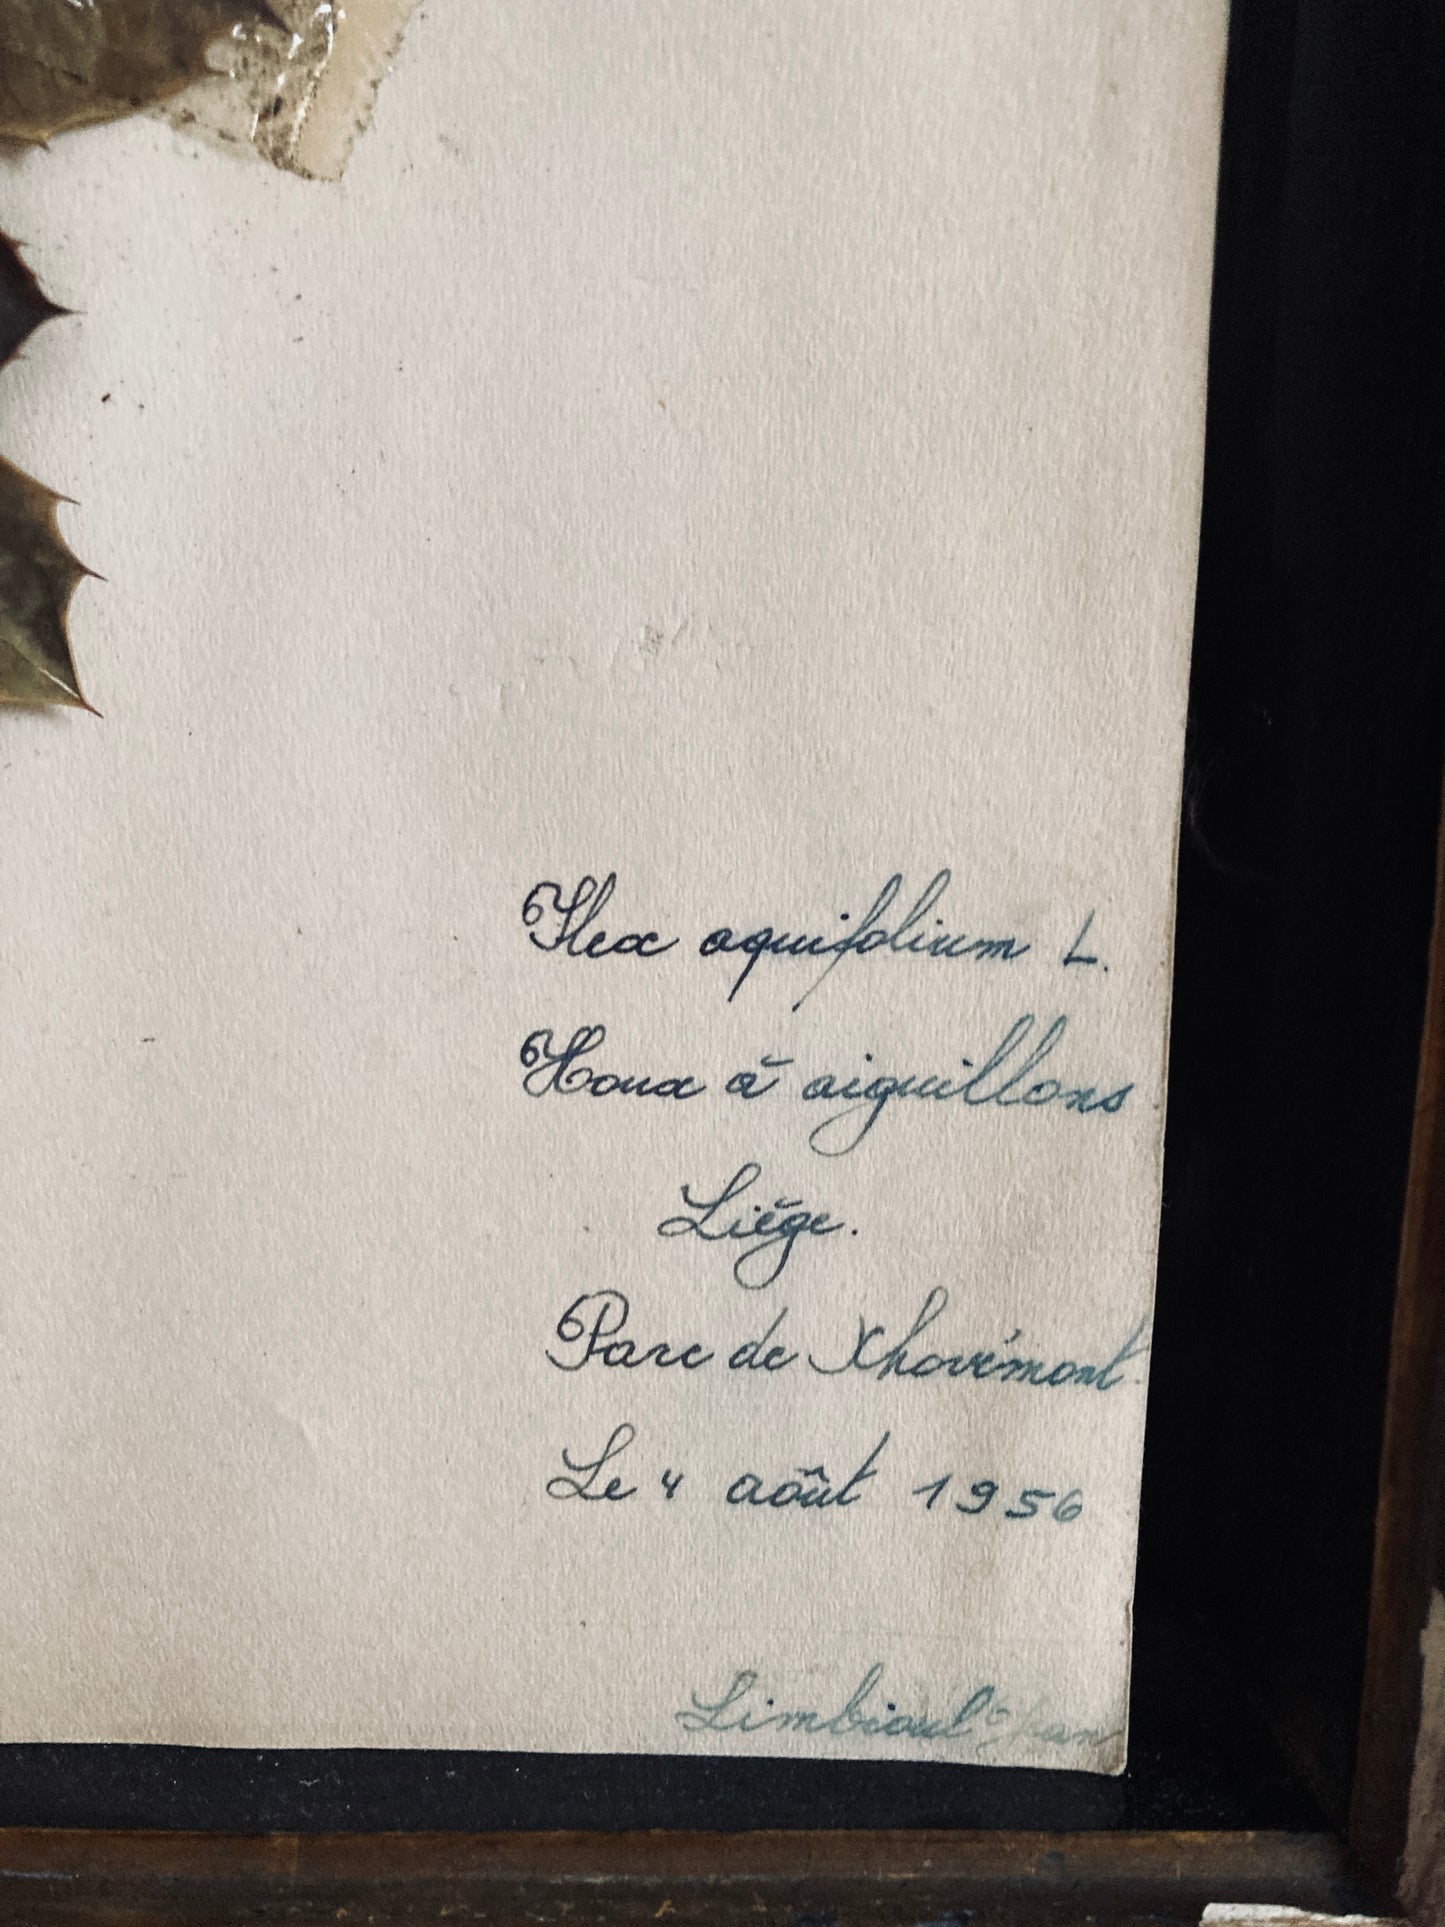 Ilex aquifolium L.
Houx à aiguillons
Liège.
Parc de Xhovémont
Le 4 août 1956
Limbioul Jean